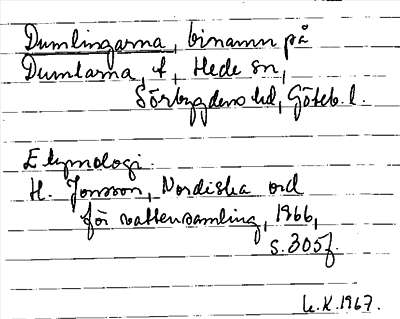 Dumlingarna, binamn på
Dumlarna, t, Hede sn,
Sörbygdens hd, Göteb. l.
Etymologi.
H. Jonsson, Nordiska ord
för vattensamling, 1966,
s. 305f.
K. 1967.